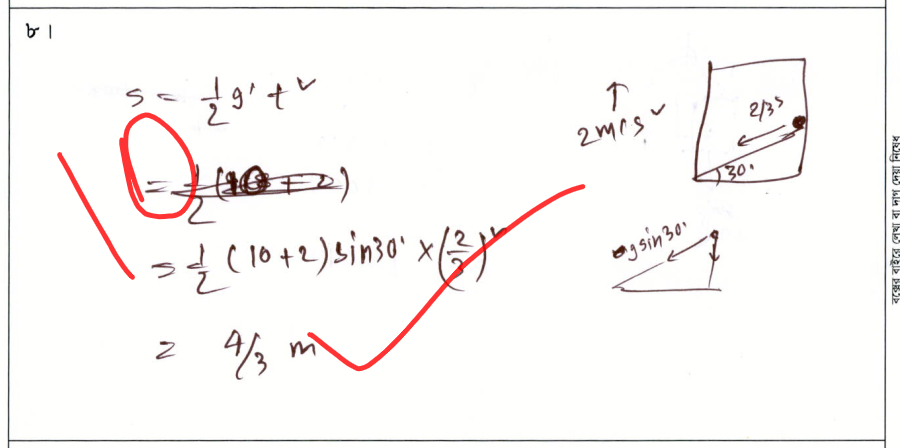 ৮।
s = 1/2 g' t²
= 1/2 (10 + 2)
= 1/2 (10+2) sin30° × (2/3)²
= 4/3 m
↑
2 ms²
2/3 s
30°
gsin30°
বক্সের বাইরে লেখা বা দাগ দেয়া নিষেধ